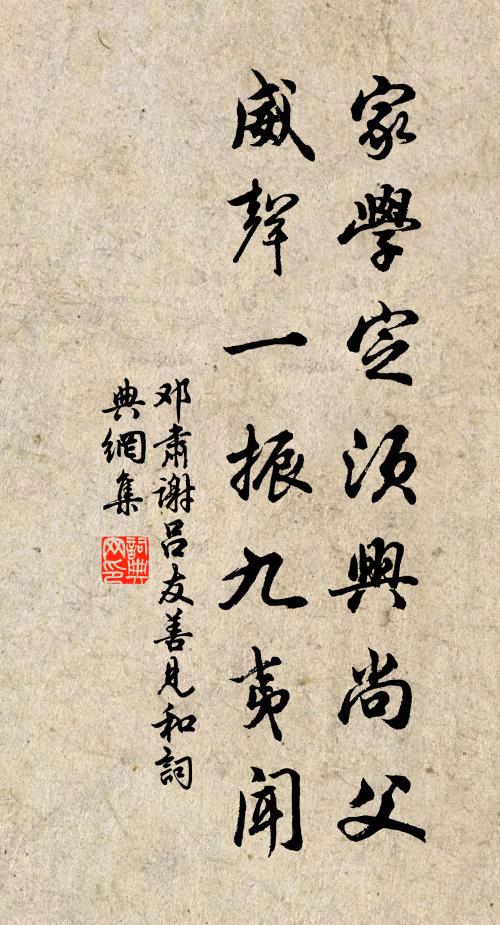 家學定須興尚父
威聲一振九夷聞
邓肅謝吕友善見和詞
典網集
詞典
网印